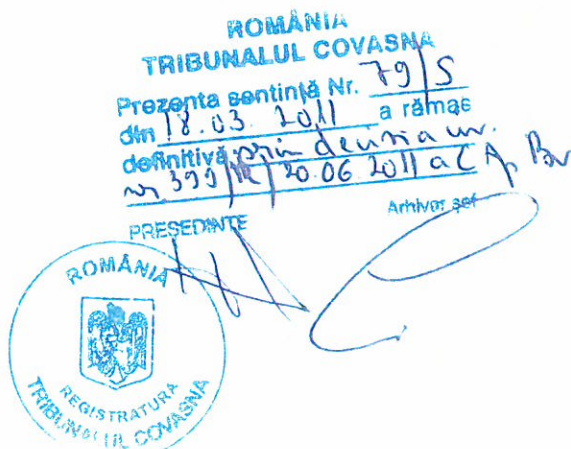 ROMÂNIA
TRIBUNALUL COVASNA
Prezenta sentinţă Nr. 79/S
din 18.03.2011 a rămas
definitivă prin decizia nr.
nr. 399/R/20.06.2011 a C Ap Bv
PRESEDINTE
Arhivar şef
ROMÂNIA
REGISTRATURA
TRIBUNALUL COVASNA